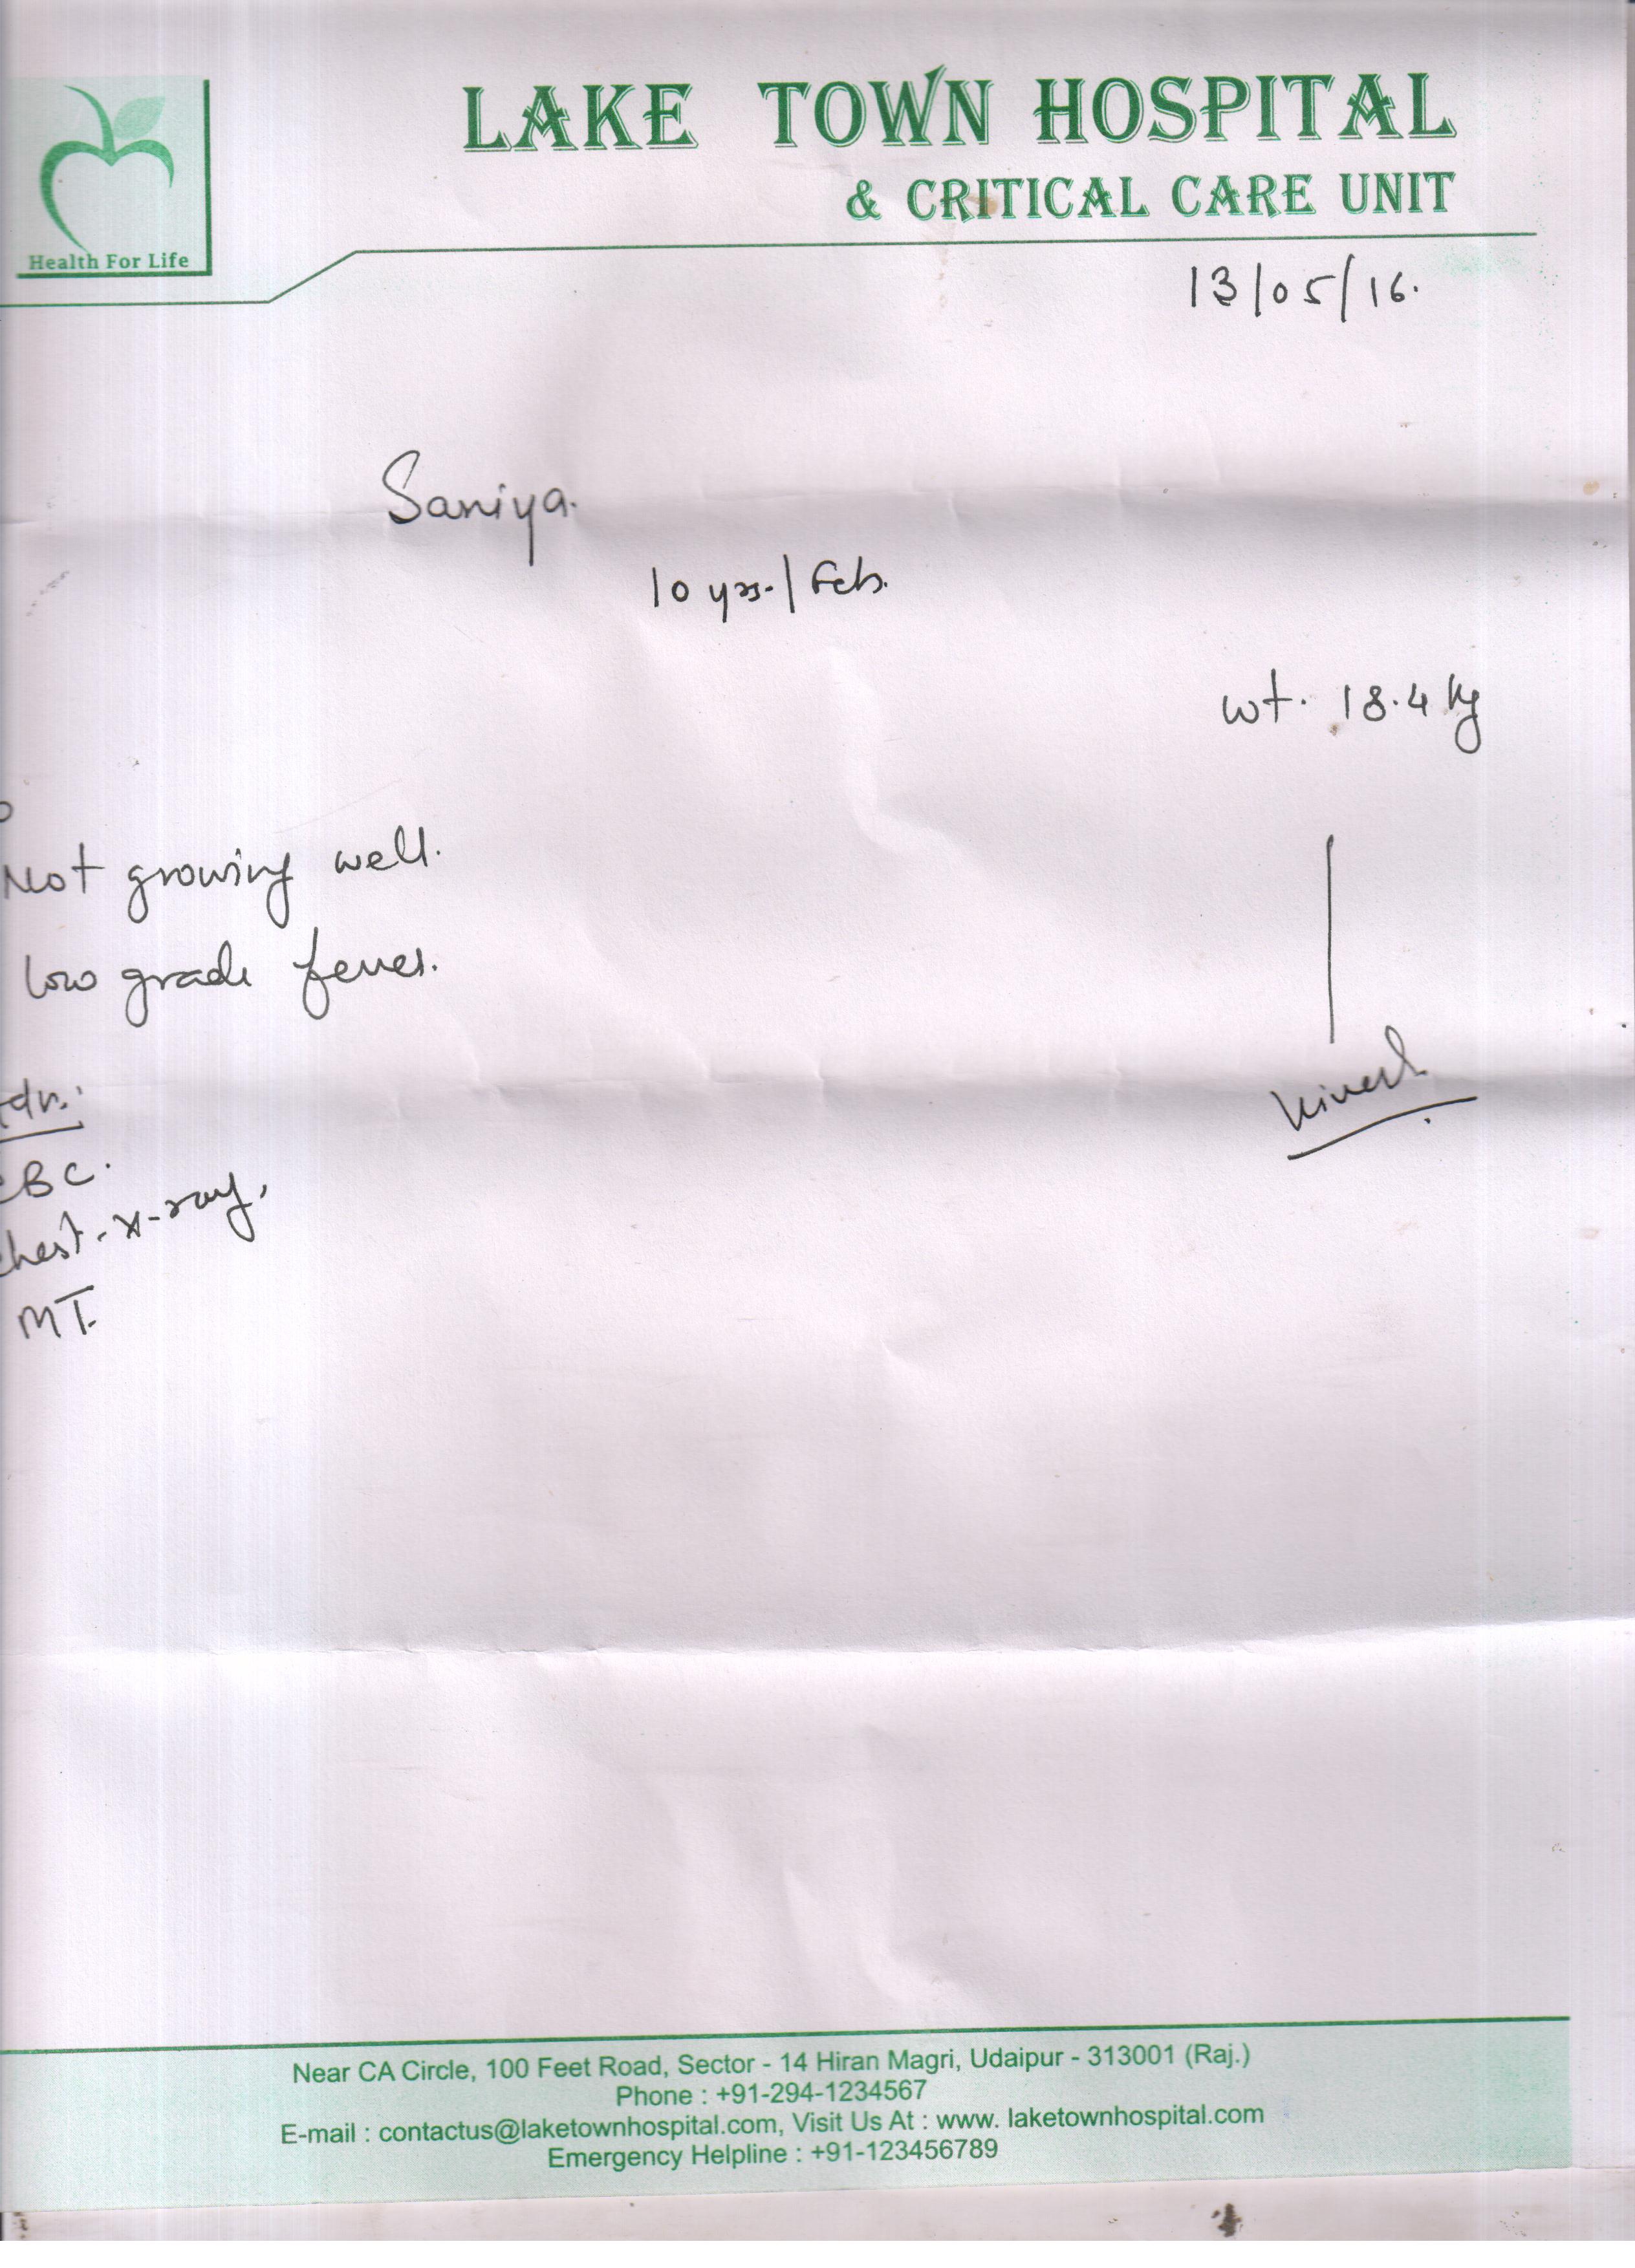 LAKE TOWN HOSPITAL
& CRITICAL CARE UNIT
Health For Life
13/05/16.
Saniya.
10 yrs. /
wt. 18.4 kg
Not growing well.
low grade fever.
CBC.
chest-x-ray,
MT.
Near CA Circle, 100 Feet Road, Sector - 14 Hiran Magri, Udaipur - 313001 (Raj.)
Phone : +91-294-1234567
E-mail : contactus@laketownhospital.com, Visit Us At : www. laketownhospital.com
Emergency Helpline : +91-123456789